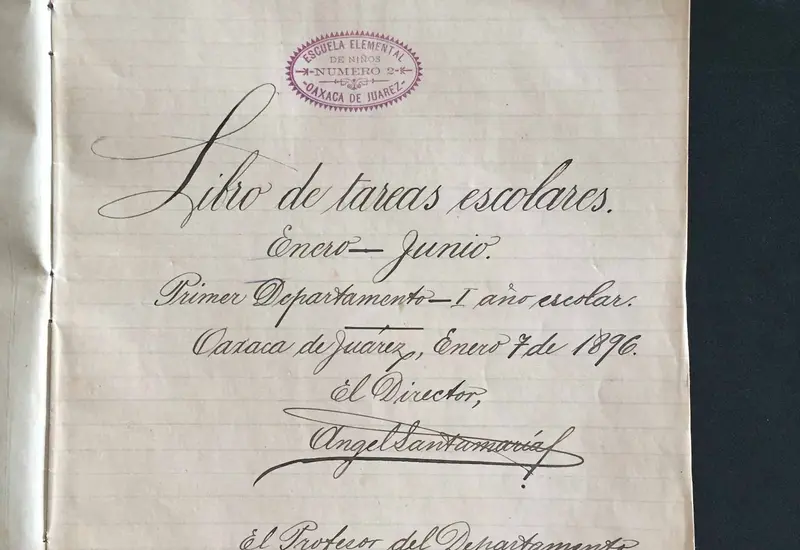 ESCUELA ELEMENTAL
DE NIÑOS
NUMERO 2
OAXACA DE JUAREZ
Libro de tareas escolares.
Enero— Junio.
Primer Departamento— I año escolar.
Oaxaca de Juárez, Enero 7 de 1896.
El Director,
Angel Santamaría
El Profesor del Departamento